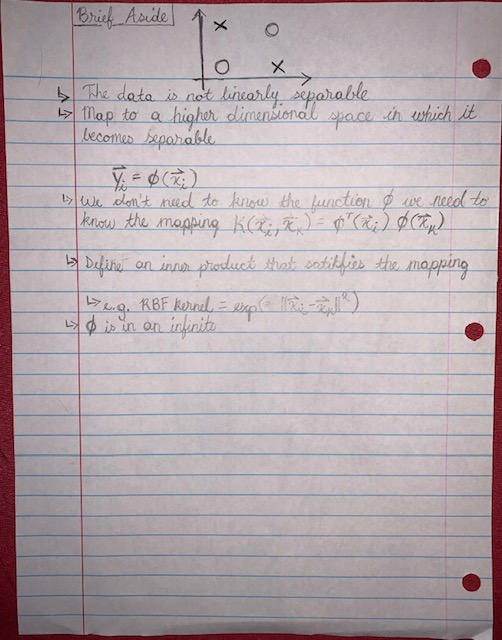 Brief Aside
↳ The data is not linearly separable
↳ Map to a higher dimensional space in which it
becomes separable
y⃗ᵢ = φ(x⃗ᵢ)
↳ We don't need to know the function φ we need to
know the mapping K(x⃗ᵢ, x⃗ₖ) = φᵀ(x⃗ᵢ) φ(x⃗ₖ)
↳ Define an inner product that satisfies the mapping
↳ e.g. RBF kernel = exp(- ||x⃗ᵢ - x⃗ₖ||²)
↳ φ is in an infinite